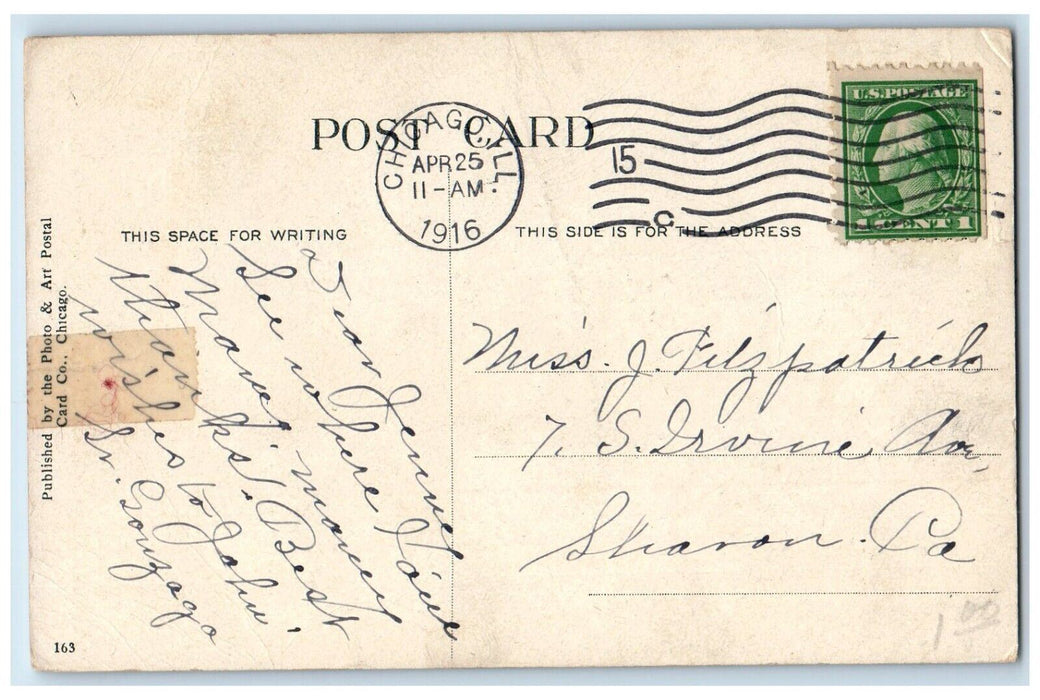 POST CARD
CHICAGO, ILL.
APR 25
11-AM
1916
15
C
U.S. POSTAGE
1 CENT 1
THIS SPACE FOR WRITING
THIS SIDE IS FOR THE ADDRESS
Dear Jennie
See where Your
Money money
thanks! Best
wishes to John.
Sr. Gonzaga
Miss. J. Fitzpatrick
7, S. Irvine Av,
Sharon. Pa
Published by the Photo & Art Postal
Card Co., Chicago.
163
1 00